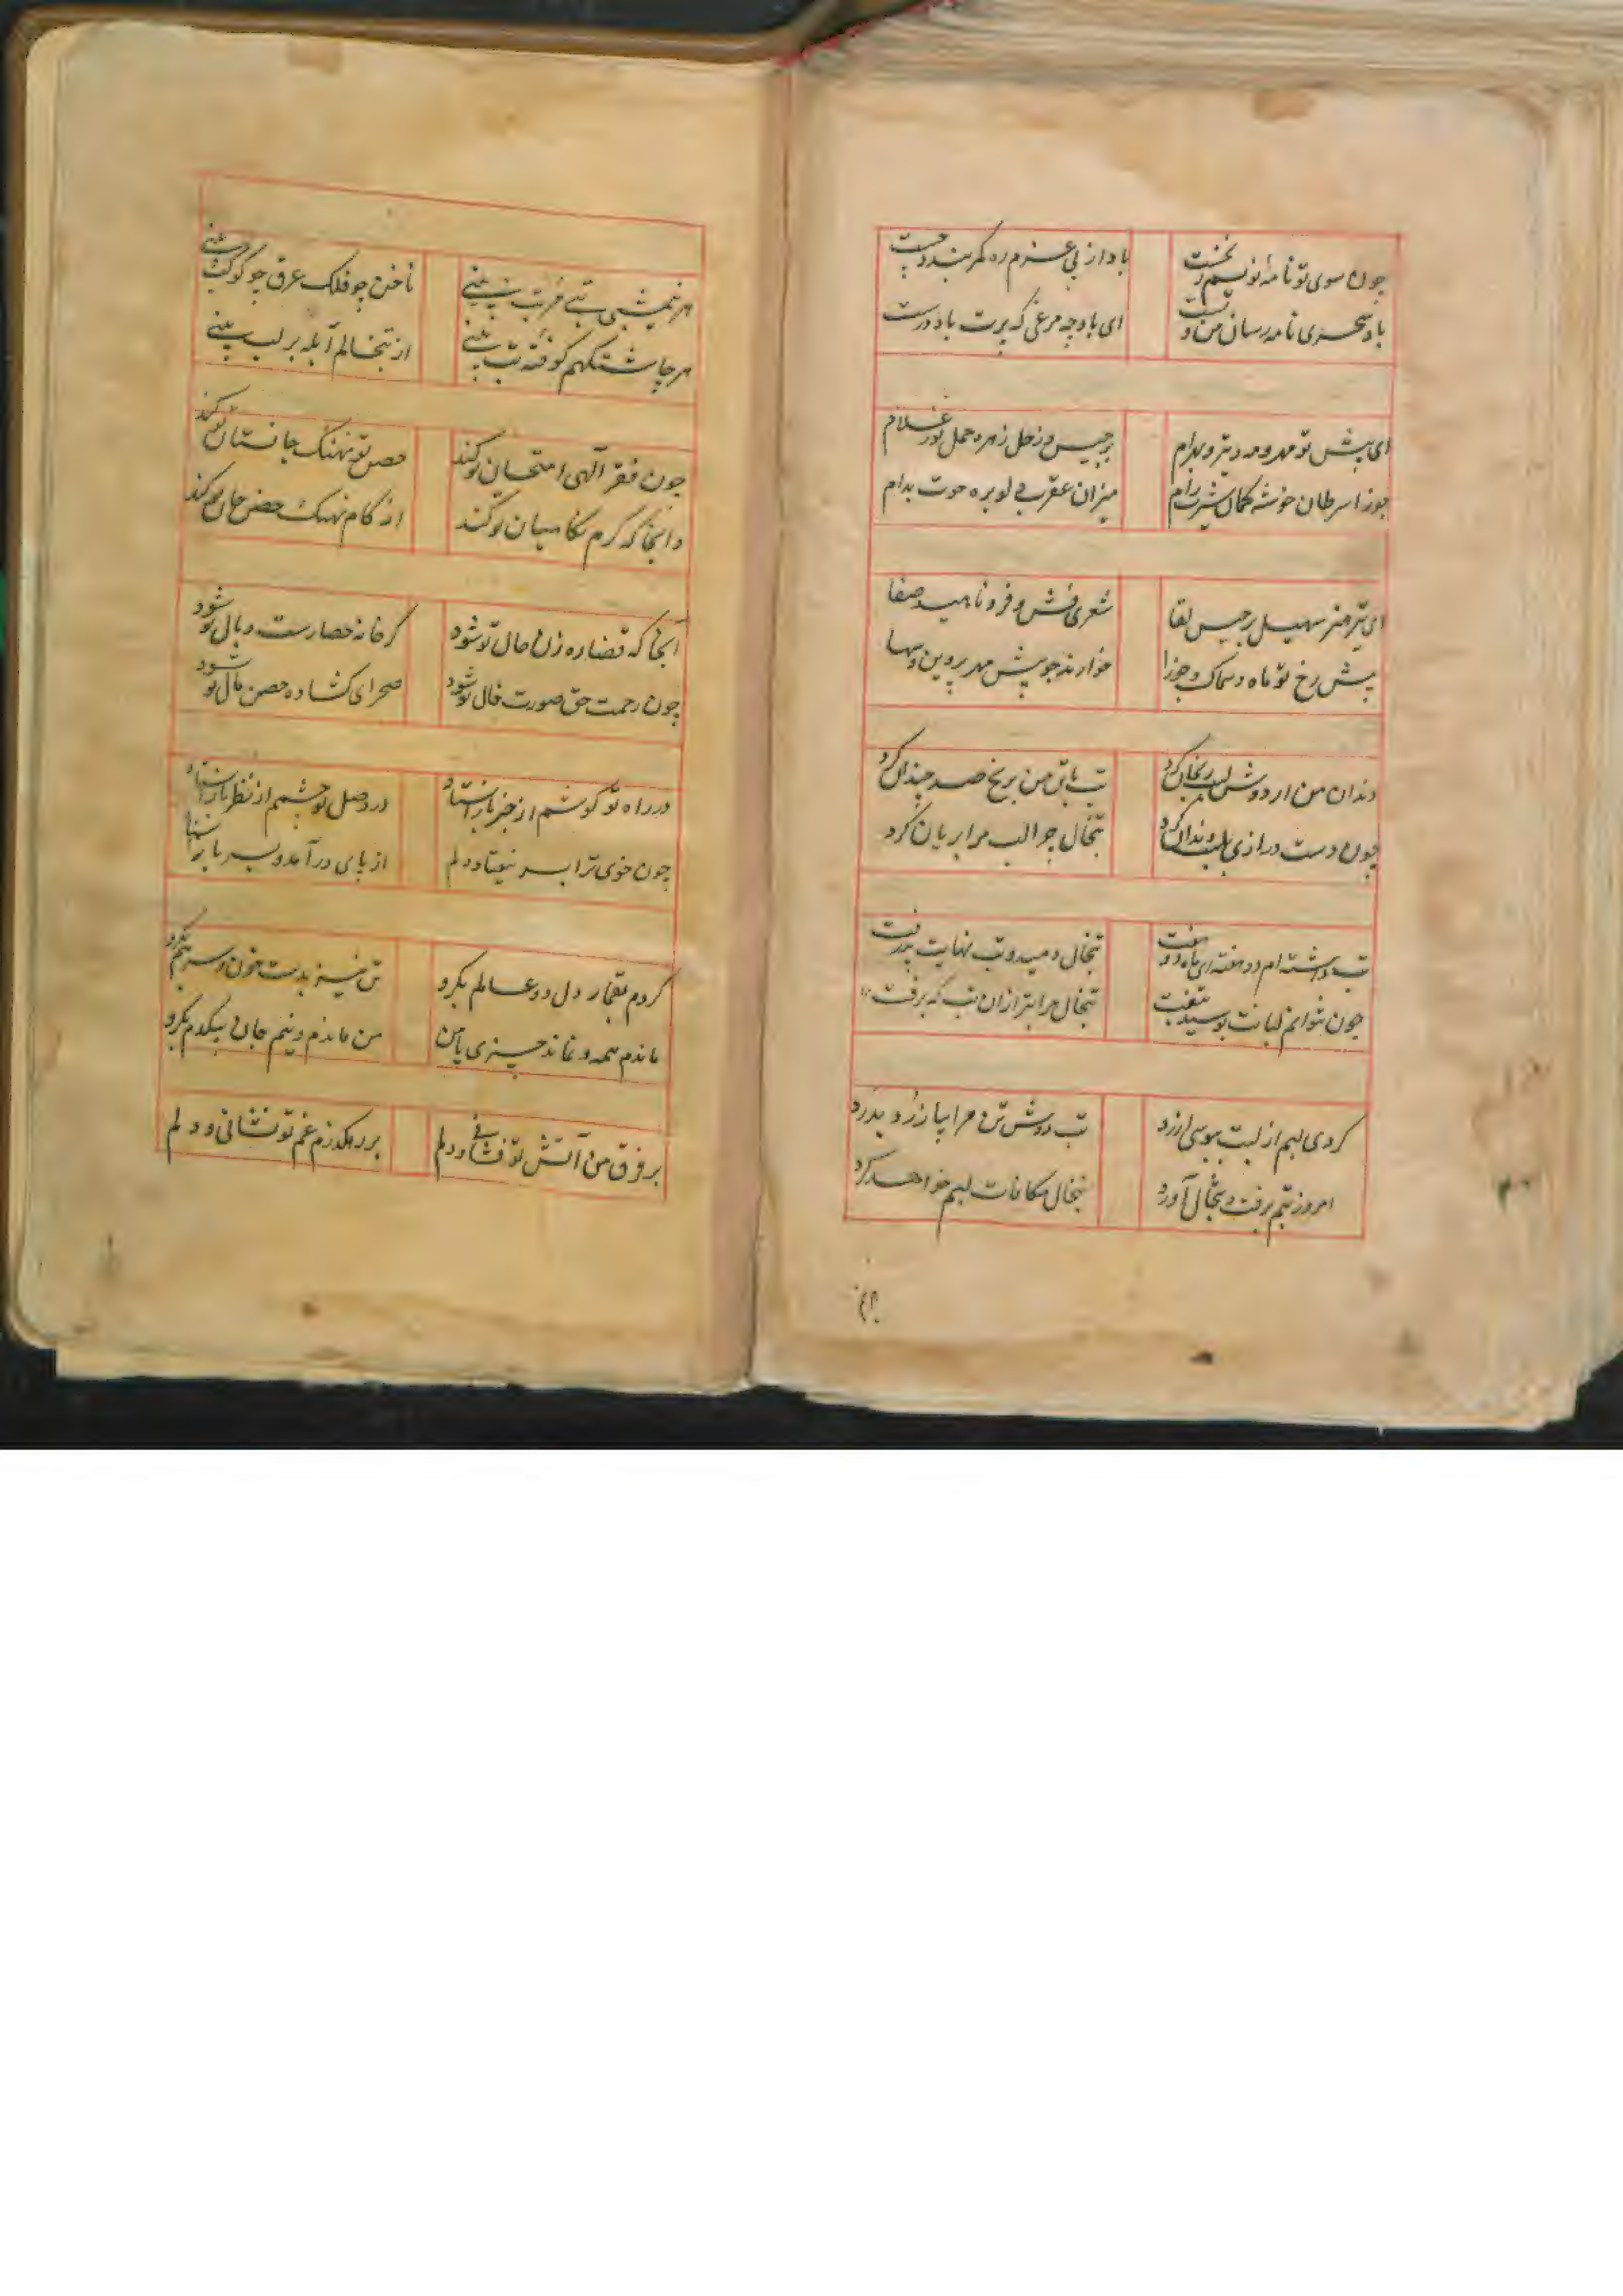 چون سوی تو نامهٔ نویسم ز نخست
باد از پی عزم ره کمر بندد چست
باد سحری نامه رسان من و تست
ای باد چه مرغی که پرت باد درست
ای پیش تو مهر و مه و تیر و بهرام
برجیس و زحل زهره حمل ثور غلام
جوزا سرطان خوشه کمان شیرت رام
میزان عقرب دلو بره حوت بدام
ای تیر هنر سهیل برجیس لقا
شعری فش و فر و ناهید صفا
پیش رخ تو ماه و سماک و جوزا
خوارند چو پیش مهر پروین و سها
دندان من ار دوش لبت رنجان کرد
تب با تن من برنج صد چندان کرد
چون دست درازی بلب دندان کرد
تبخال چرا لب مرا بریان کرد
تب داشته‌ام دو هفته ای ماه دو هفت
تبخال دمید و تب نهایت پذرفت
چون نتوانم لبانت بوسید بتفت
تبخال مرا بتر ازان تب که برفت
کردی لبم از لبت ببوسی ارزد
تب دوش تن مرا بیازرد و بدرد
امروز تبم برفت و تبخال آورد
تبخال مکافات لبم خواهد کرد
هر نیمشبی تبی مرتب بینی
ناخن چو فلک عرق چو کوکب بینی
هر چاشتگهم کوفته تب بینی
از تبخالم آبله بر لب بینی
چون فقر آلهی امتحان تو کند
حصن تو نهنگ جانستان تو کند
وانجا که کرم نگاهبان تو کند
از کام نهنگ حصن جان تو کند
آنجا که قضا ره زن حال تو شود
گر خانه حصارست وبال تو شود
چون رحمت حق صورت فال تو شود
صحرای گشاده حصن مال تو شود
در راه تو گوشم از خبر باز استاد
در وصل تو چشمم از نظر باز استاد
چون خوی ترا بسر نیفتاد دلم
از پای در آمد و بسر باز استاد
کردم بقمار دل دو عالم بگرو
تن نیز بدست خون و سر هم بگرو
ماندم همه و نماند چیزی با من
من ماندم و نیم جان بیکدم بگرو
بر فرق من آتش تو فشانی و دلم
بر رهگذرم غم تو نشانی و دلم